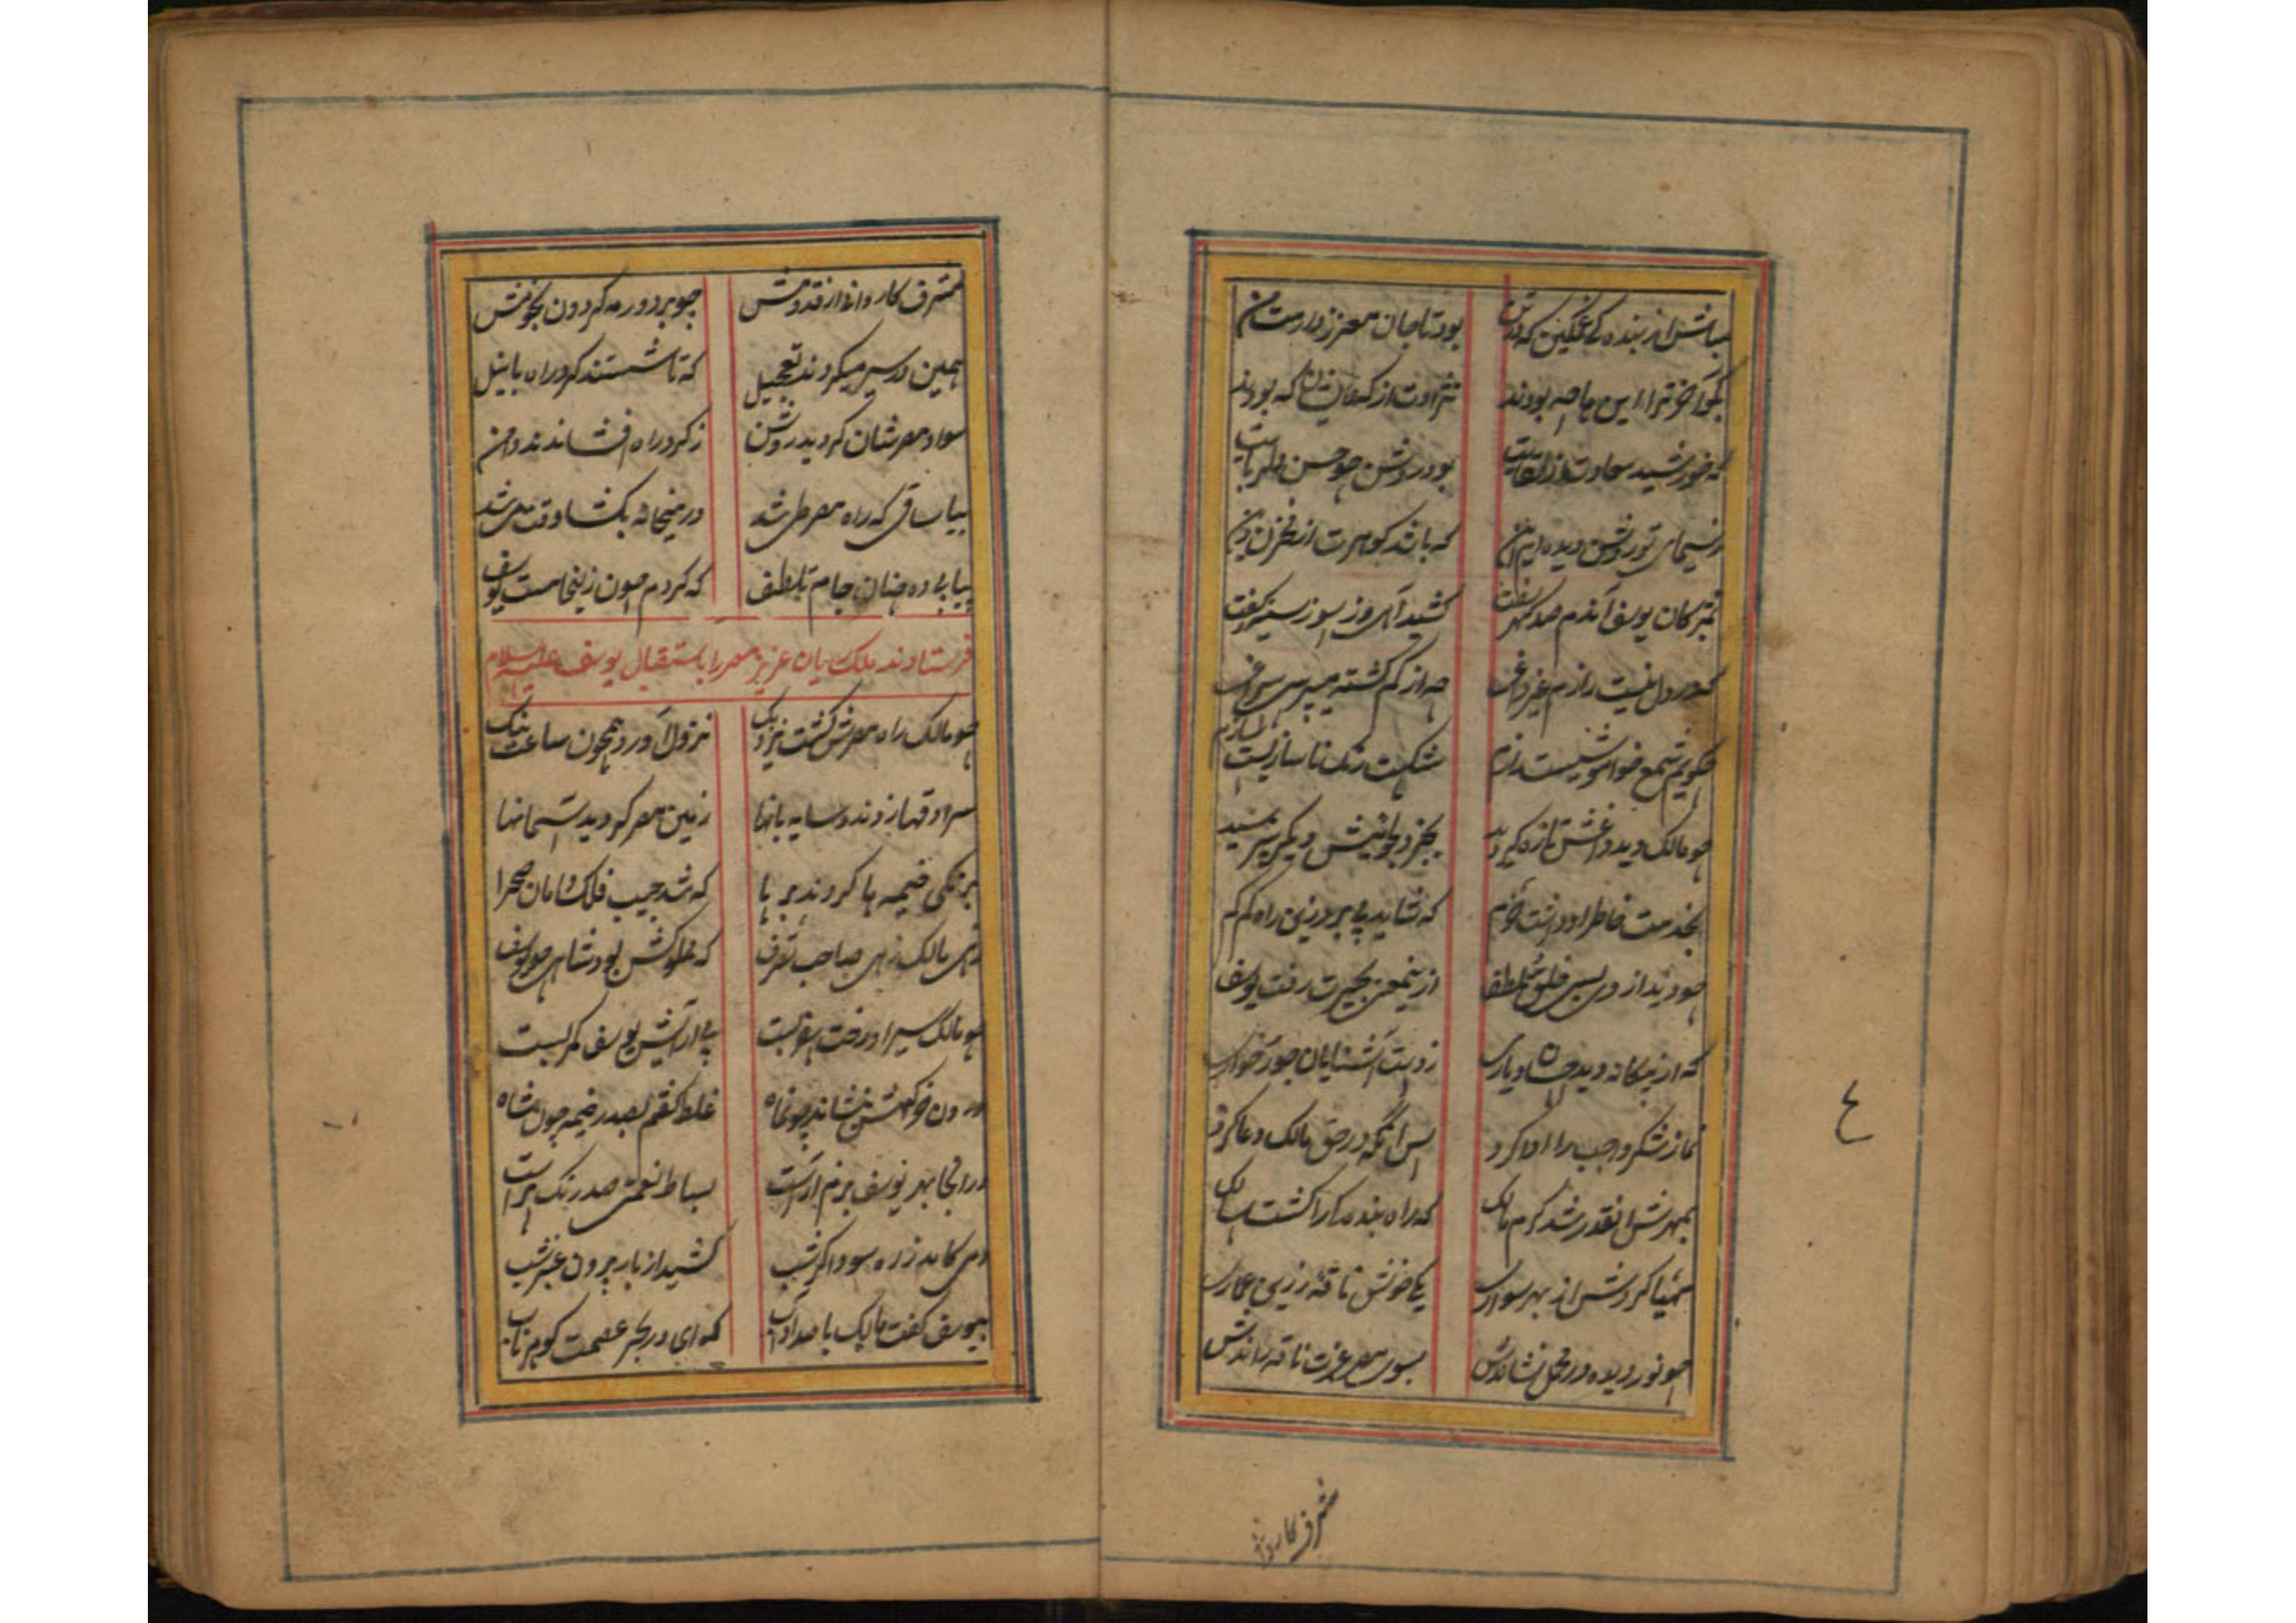 مباش از بنده کی غمگین که در تن بود تا جان معزز دارمت من
بگو آخر ترا این ها چه بودند نژادت از که کان که بودند
که خورشید سعادت از لقایت بود روشن چو حسن دلربایت
ز سیمای تو روشن دیده ام من که باشد گوهرت از مخزن
یوسف آندم صد گهر سفت کشید آهی و ز سوز سینه گفت
که در دل نیست رازم غیر داغی چه از گم گشته میپرسی سراغی
چگویم شمع خاموشیست رازم شکست رنگ ناسازیست سازم
چو مالک دید داغش تازه گردید بجز دلجوئیش دیگر نپرسید
بخدمت خاطر او داشت خرم که شاید پی برد زین راه کم کم
چو دید از وی بسی خلق و تلطف ازین معنی بحیرت رفت یوسف
که از بیگانه دید احسان و یاری ز دست آشنایان جور و خواری
نماز شکر واجب را ادا کرد پس آنگه در حق مالک دعا کرد
بمهرش آنقدر شد گرم مالک که راه بندگی را گشت سالک
مهیا کردش از بهر سواری یکی خوش ناقه زرین عماری
چو نور دیده در محمل نشاندش بسوی مصر عزت ناقه راندش
مشرف کاروان
ع
مشرف کاروان از قدومش چو بر دور مه گردون نجومش
همین در سیر میکردند تعجیل که تا شستند گرد راه با نیل
سواد مصر شان گردید روشن ز گرد راه افشاندند دامن
بیا ساقی که راه مصر طی شد در میخانه بگشا وقت می شد
پیاپی ده چنان جام تلطف که گردم چون زلیخا مست یوسف
فرستادند ملک یان عزیز مصر را باستقبال یوسف علیه السلام
چو مالک راه مصرش گشت نزدیک نزول آورد همچون ساعت نیک
سرادقها زدند و سایه بانها زمین مصر گردید آسمانها
برنگی خیمه ها کردند بر پا که شد جیب فلک دامان صحرا
زهی مالک زهی صاحب تصرف که مملوکش بود شاهی چو یوسف
چو مالک سیر او رخت سفر بست پی آرایش یوسف کمر بست
درون خرگهش بنشاند چون ماه غلط گفتم بصدر خیمه چون شاه
در آنجا بهر یوسف بزم آراست بساط نعمتی صد رنگ آراست
دمی کامد ز ره سوداگر شب کشید از بار بیرون عنبر شب
بیوسف گفت مالک با صد آداب که ای در بحر عصمت گوهر ناب